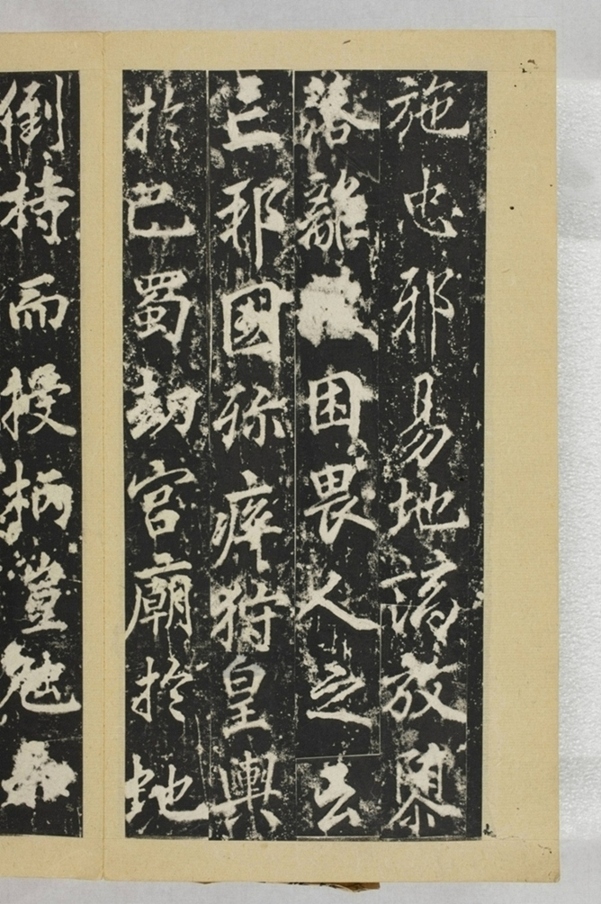 施忠邪易地謫放
落離困畏人之云
亡邦國殄瘁狩皇輿
於巴蜀劫宮廟於地
倒持而授柄豈